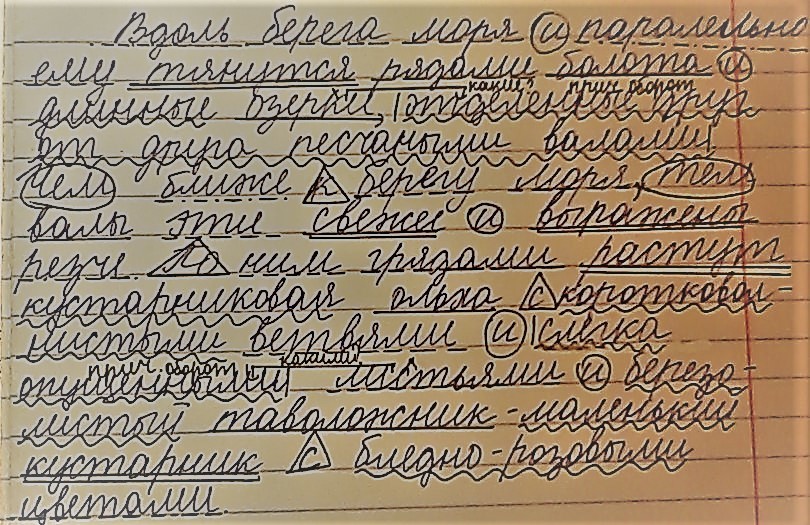 Вдоль берега моря и паралельно
ему тянутся рядами болота и
какие? прич. оборот
длинные озерки, отделенные друг
от друга песчаными валами.
Чем ближе к берегу моря, тем
валы эти свежее и выражены
резче. По ним грядами растут
кустарниковая ольха с коротковол-
нистыми ветвями и слегка
прич. оборот какими?
опущенными листьями и березо-
листый таволожник - маленький
кустарник с бледно-розовыми
цветами.